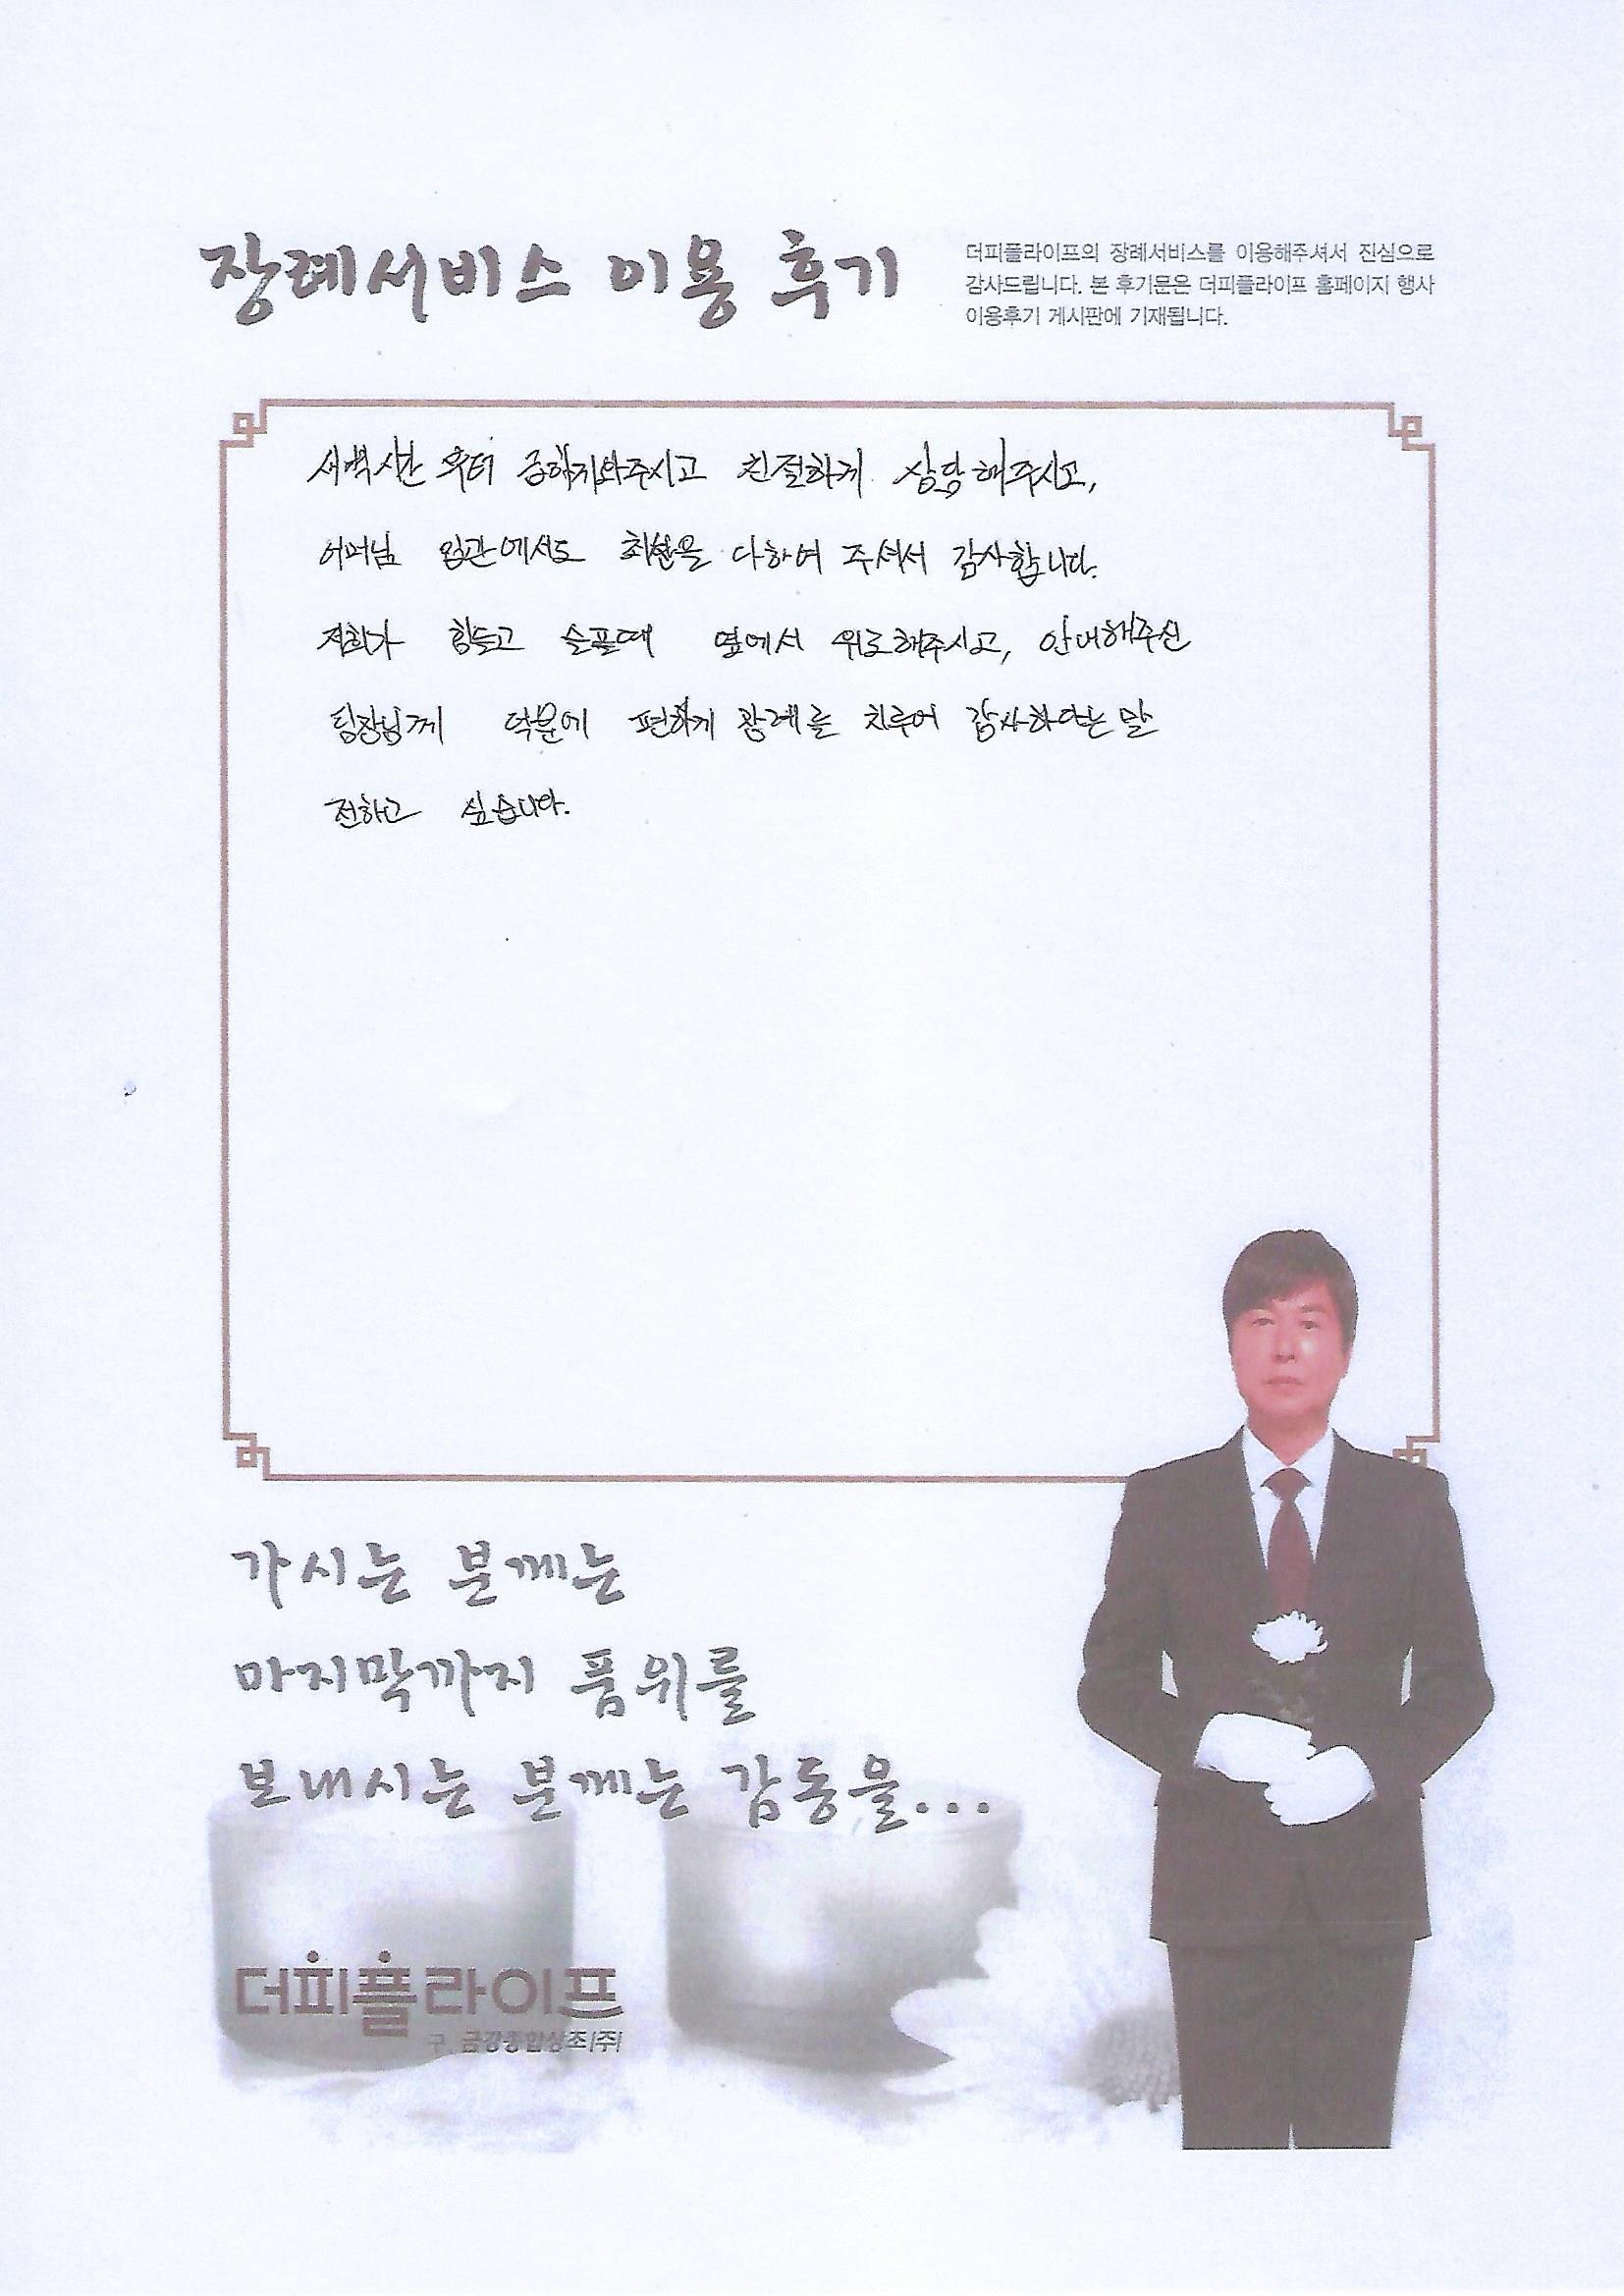 장례서비스 이용 후기
더피플라이프의 장례서비스를 이용해주셔서 진심으로
감사드립니다. 본 후기문은 더피플라이프 홈페이지 행사
이용후기 게시판에 기재됩니다.
새벽시간 부터 급하게와주시고 친절하게 상담해주시고,
어머님 입관에서도 최선을 다하여 주셔서 감사합니다.
저희가 힘들고 슬플때 옆에서 위로해주시고, 안내해주신
팀장님께 덕분에 편하게 장례를 치루어 감사하다는 말
전하고 싶습니다.
가시는 분께는
마지막까지 품위를
보내시는 분께는 감동을...
더피플라이프
구. 금강종합상조(주)